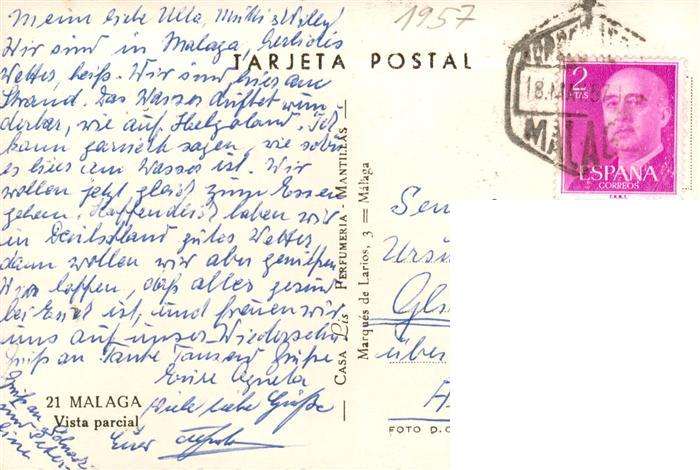 1957
TARJETA POSTAL
Meine liebe Ulla, Muthi & Willy!
Wir sind in Malaga, herrliches
Wetter, heiß. Wir sind hier am
Strand. Das Wasser duftet wun-
derbar, wie auf Helgoland. Ich
kann garnicht sagen, wie schön
es hier am Wasser ist. Wir
wollen jetzt gleich zum Essen
gehen. Hoffendlich haben wir
in Deutschland gutes Wetter,
dann wollen wir aber genießen
Wir hoffen, daß alles gesund
bei Euch ist, und freuen wir
uns auf unser Wiedersehn
Gruß an Tante Tausend Grüße
Eure Agneta
Viele liebe Grüße
Euer
Gruß an
und Peter
21 MALAGA
Vista parcial
CASA Lis PERFUMERIA - MANTILLAS
Marqués de Larios, 3 = Málaga
FOTO D.
18.MAR.
MALAG
2
PTAS
ESPAÑA
CORREOS
Sen
Ursu
Gls
über